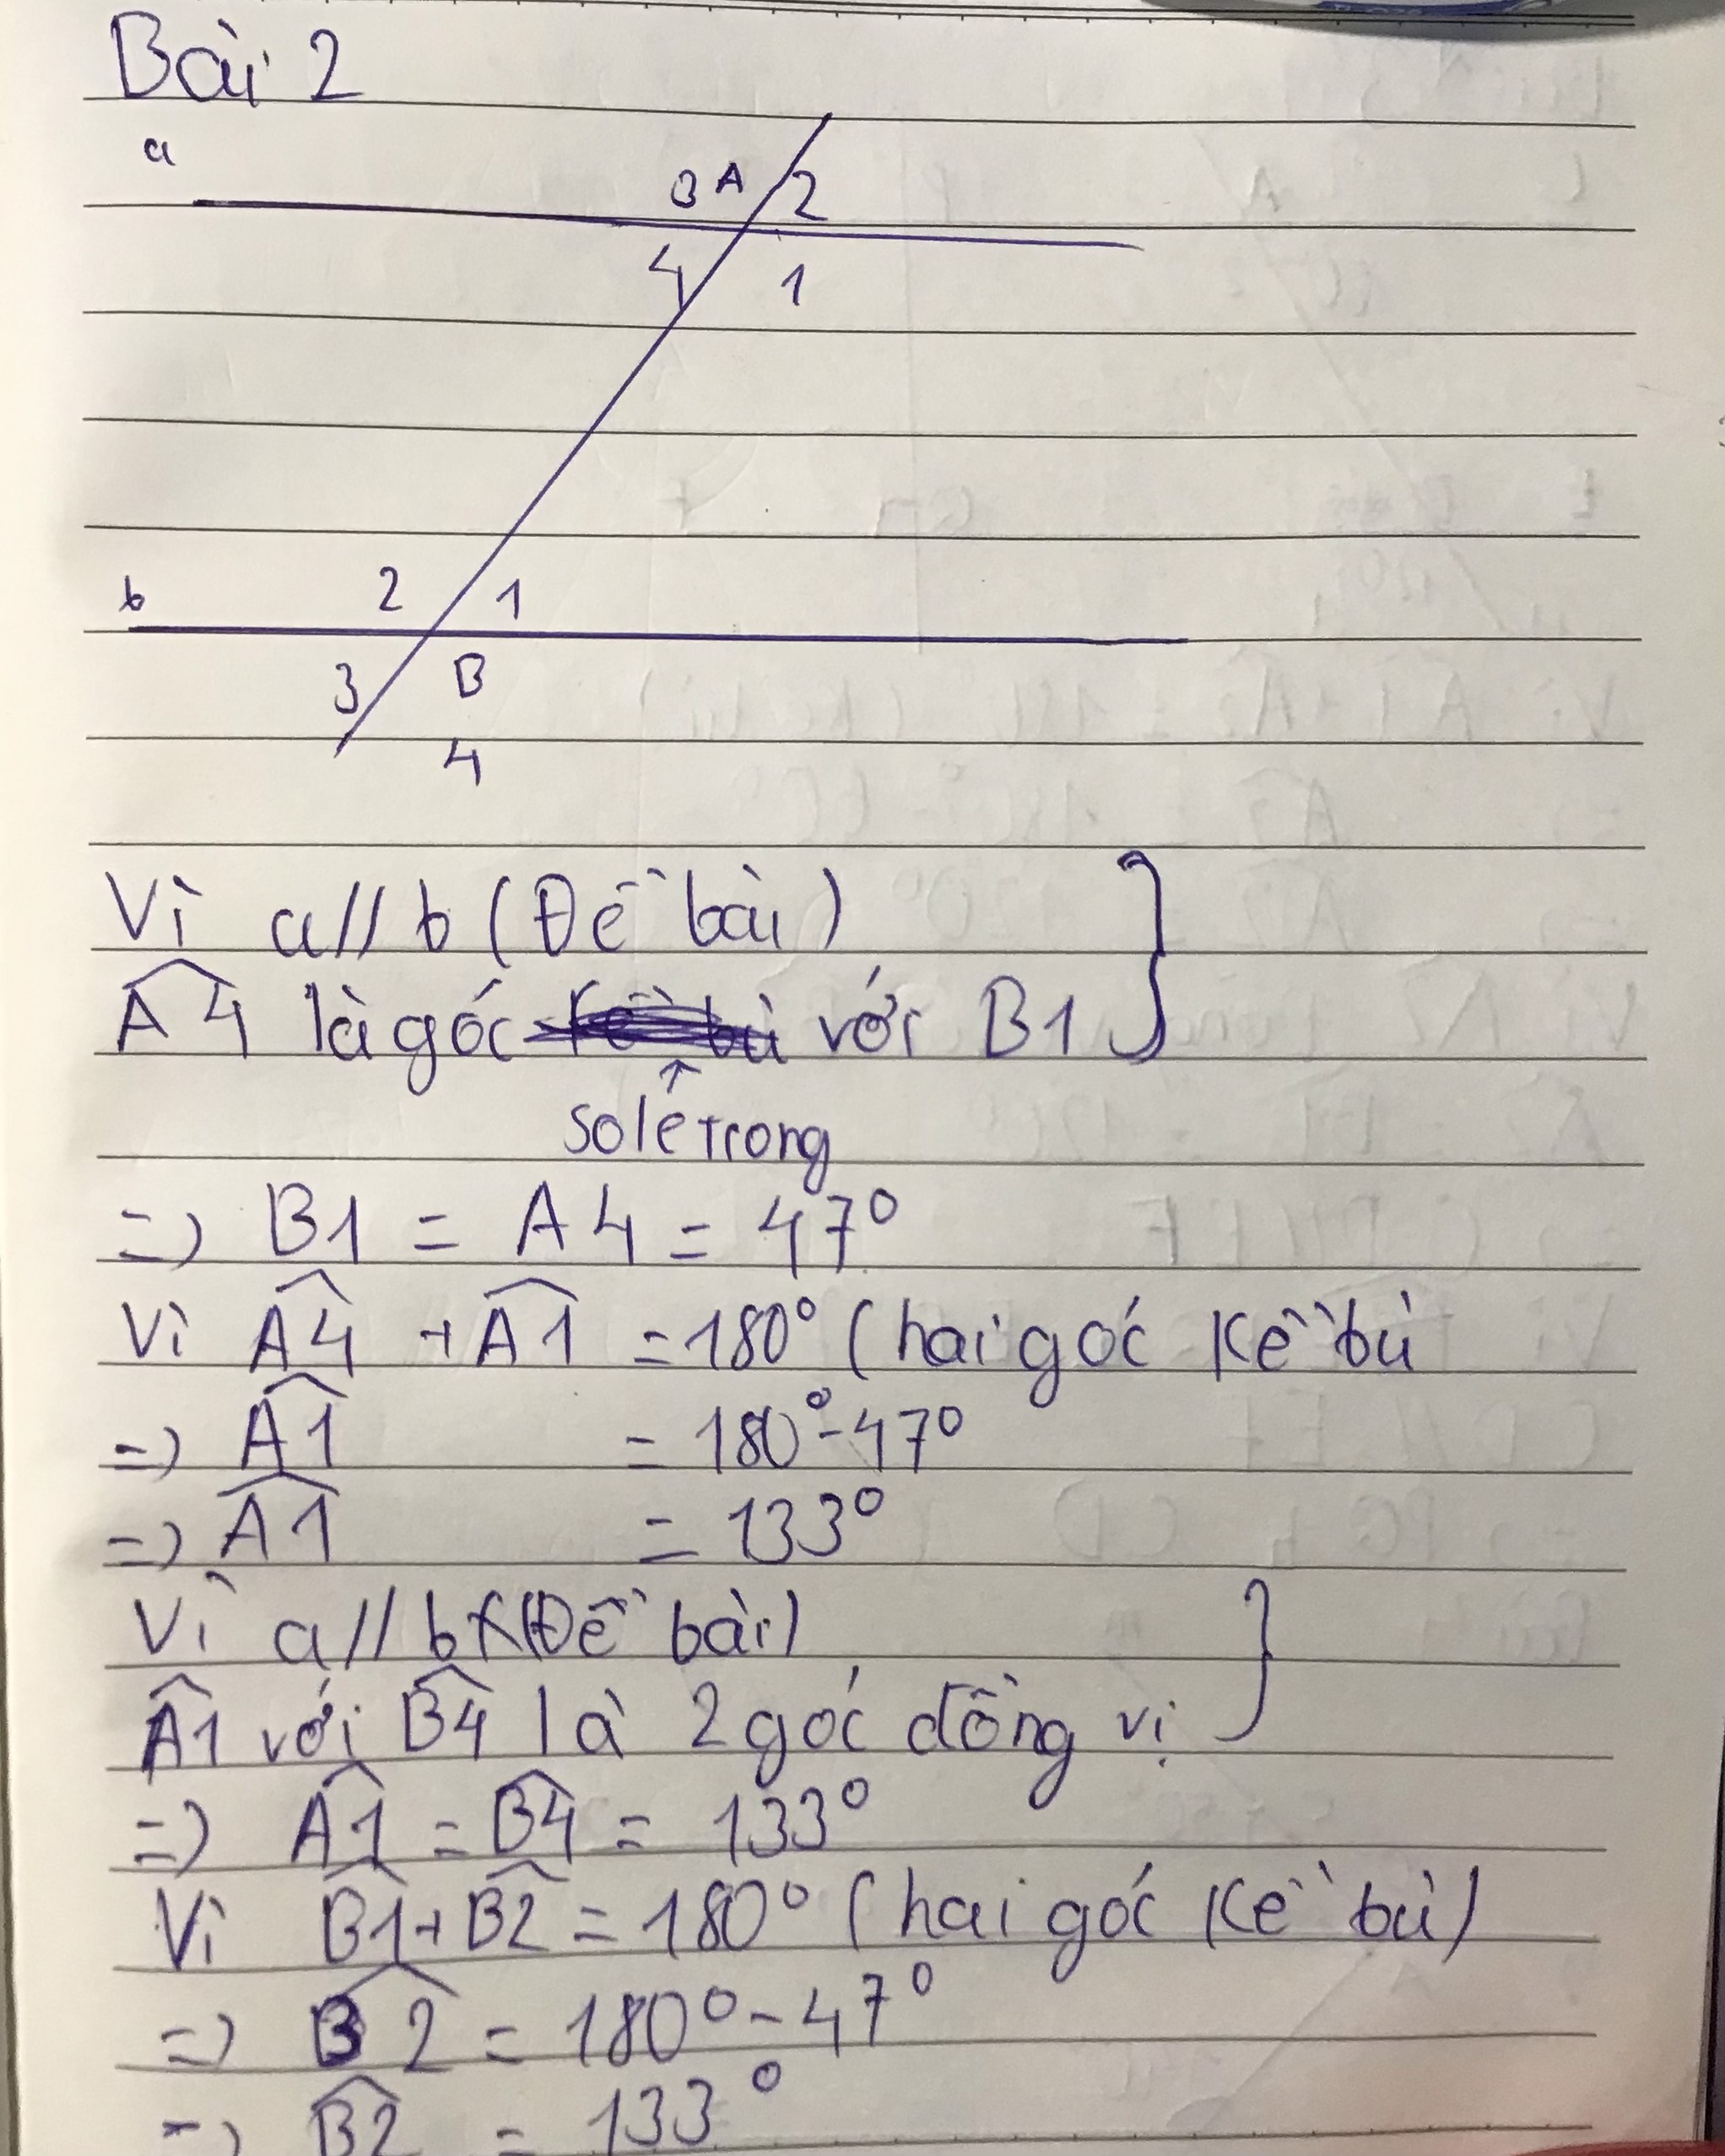 Bài 2
a
3 A 2
4 1
b 2 1
3 B
4
Vì a // b (Đề bài)
A4 là góc với B1
so le trong
=> B1 = A4 = 47°
Vì A4 + A1 = 180° (hai góc kề bù
=> A1 = 180° - 47°
=> A1 = 133°
Vì a // b (Đề bài)
A1 với B4 là 2 góc đồng vị
=> A1 = B4 = 133°
Vì B1 + B2 = 180° (hai góc kề bù)
=> B2 = 180° - 47°
=> B2 = 133°